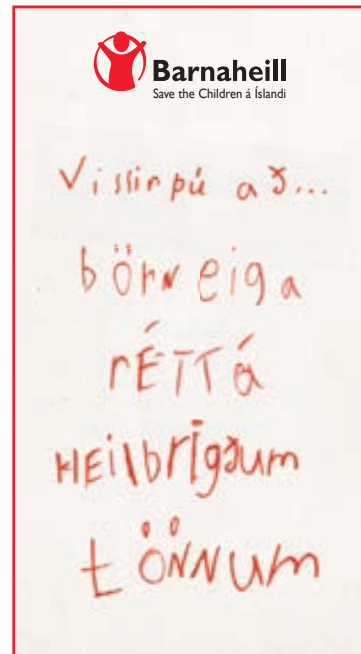 Barnaheill
Save the Children á Íslandi
Vissir þú að...
börn eiga
rÉTT á
HEilbrigðum
tÖNNUm